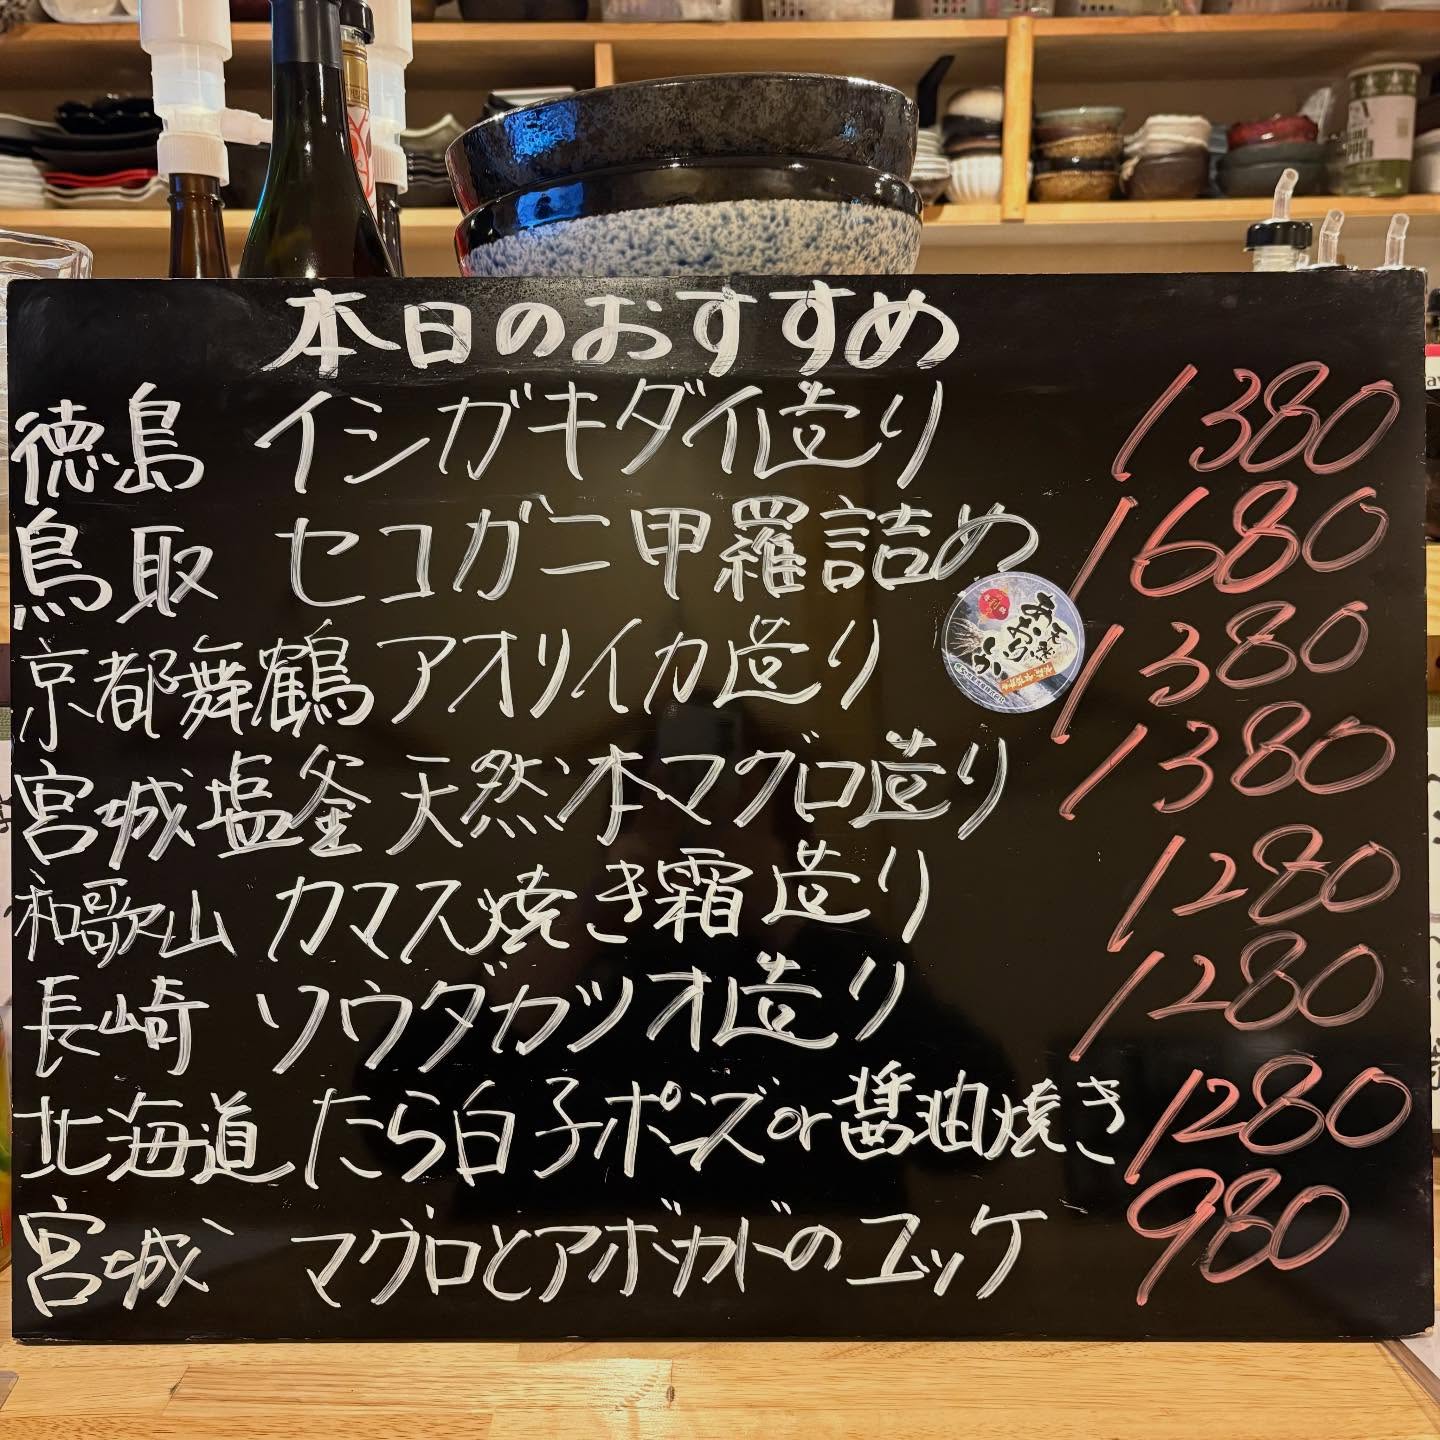 本日のおすすめ
徳島 イシガキダイ造り 1380
鳥取 セコガニ甲羅詰め 1680
京都舞鶴 アオリイカ造り 1380
宮城塩釜 天然本マグロ造り 1380
和歌山 カマス焼き霜造り 1280
長崎 ソウダガツオ造り 1280
北海道 たら白子ポンズor醤油焼き 1280
宮城 マグロとアボカドのユッケ 980